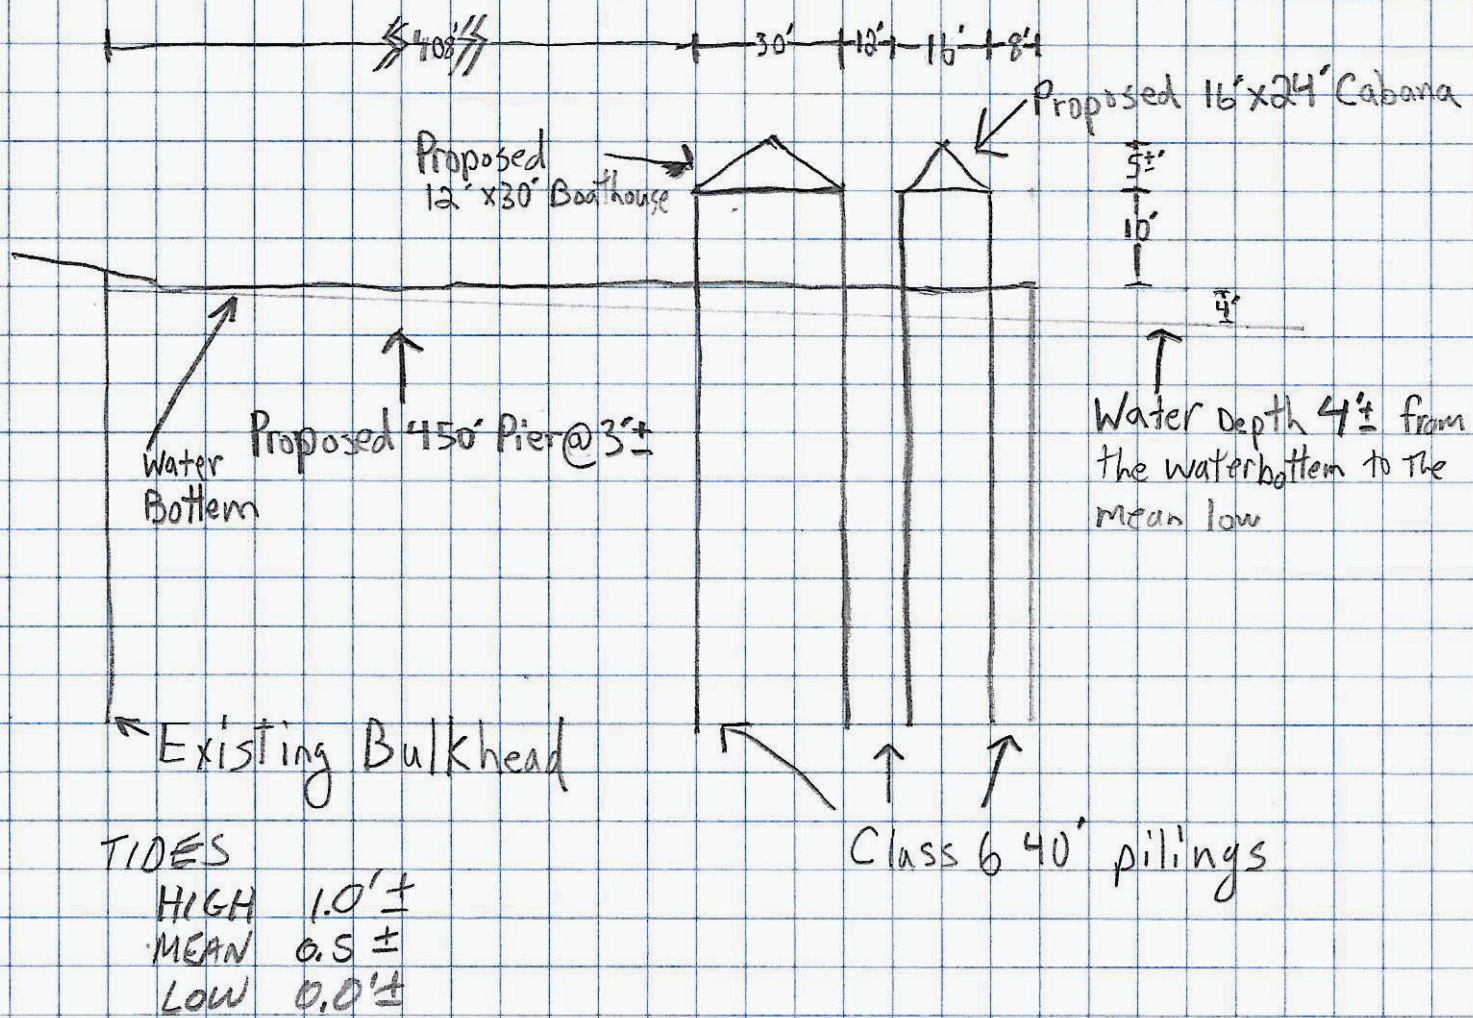 408' 30' 12' 16' 8'
Proposed 16'x24' Cabana
Proposed
12'x30' Boathouse
5±'
10'
4'
Proposed 450' Pier@3'±
Water
Bottem
Water Depth 4'± from
the waterbottem to The
mean low
Existing Bulkhead
Class 6 40' pilings
TIDES
HIGH 1.0'±
MEAN 0.5 ±
LOW 0.0'±